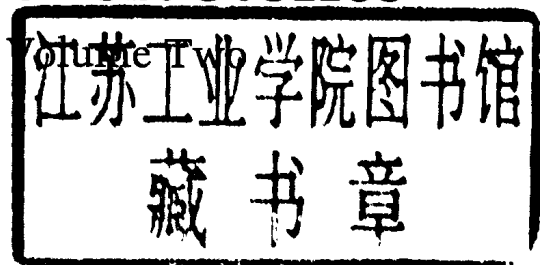 Volume Two
江苏工业学院图书馆
藏书章